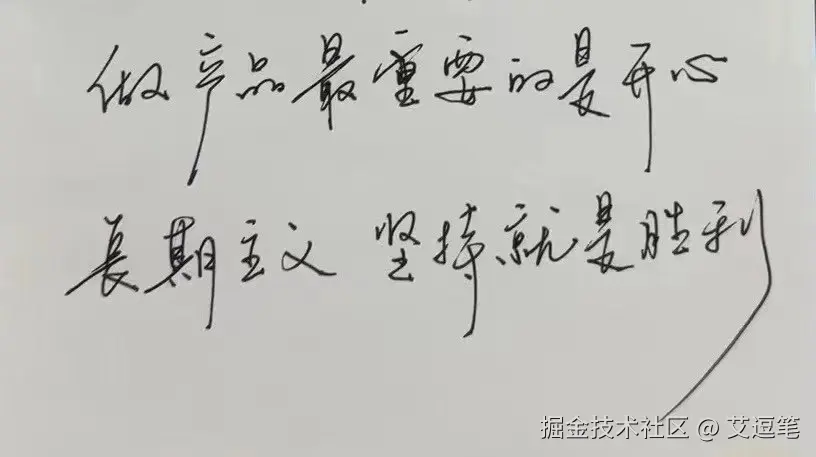 做产品最重要的是开心
長期主义 坚持就是胜利
掘金技术社区 @ 艾逗笔